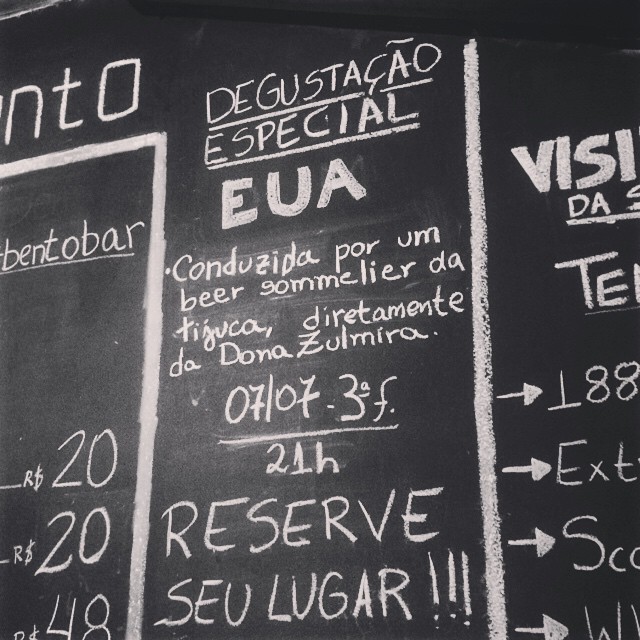 DEGUSTAÇÃO
ESPECIAL
EUA
•Conduzida por um
beer sommelier da
tijuca, diretamente
da Dona Zulmira.
07/07 - 3ª f.
21h
RESERVE
SEU LUGAR!!!
nto
bentobar
R$ 20
R$ 20
R$ 48
VISI
DA
TE
→ 188
→ Ext
→ Sco
→